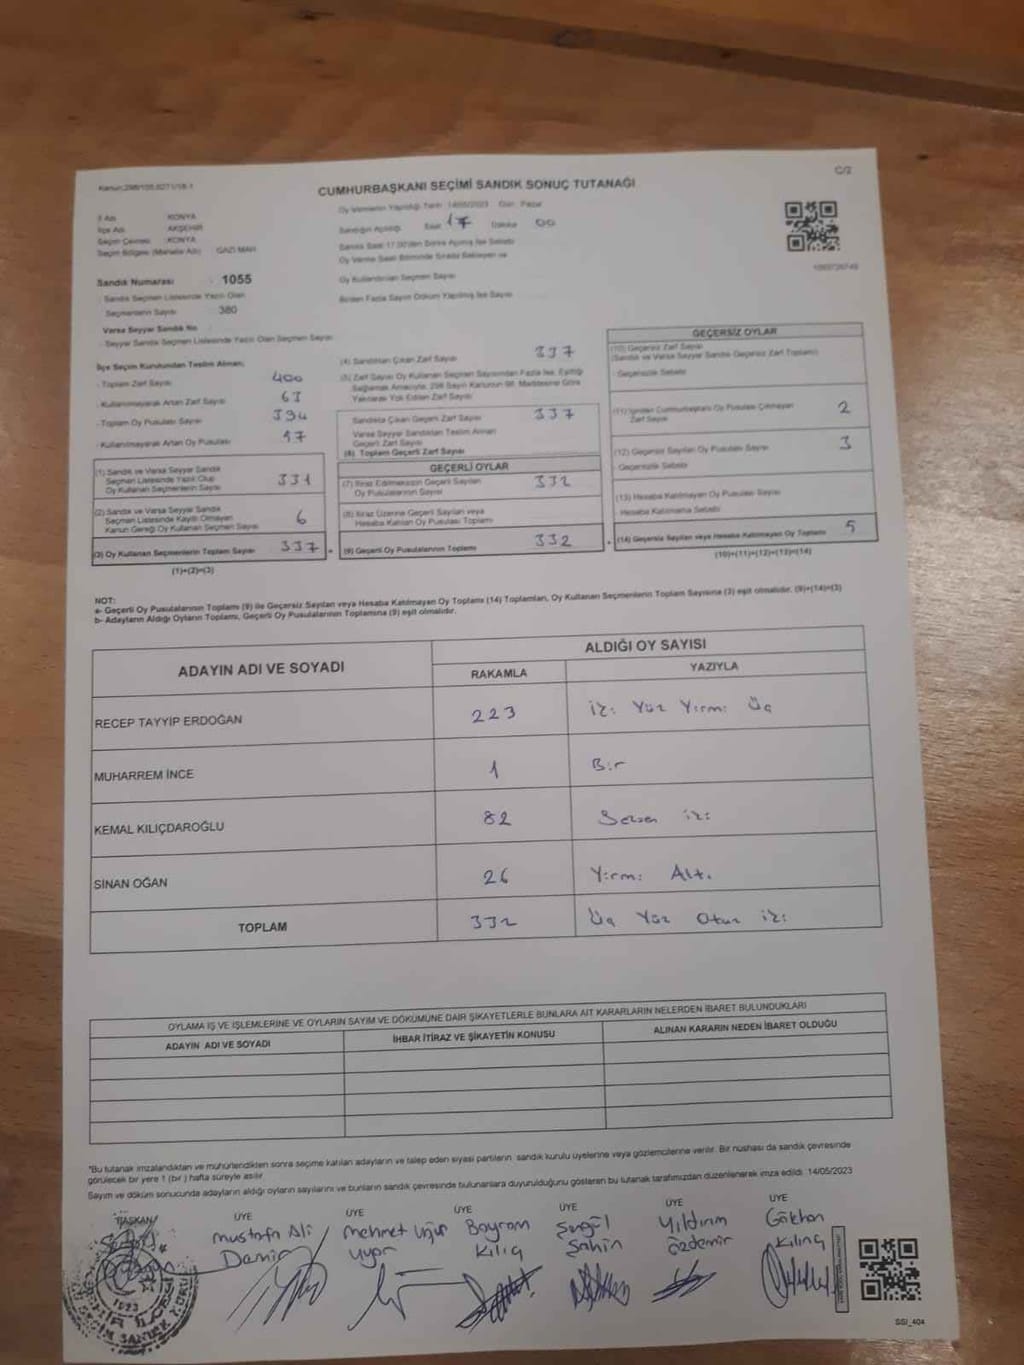 Kanun:298/105,6271/18-1
C/2
CUMHURBAŞKANI SEÇİMİ SANDIK SONUÇ TUTANAĞI
İl Adı KONYA
İlçe Adı AKŞEHİR
Seçim Çevresi KONYA
Seçim Bölgesi (Mahalle Adı) GAZİ MAH
Sandık Numarası 1055
Sandık Seçmen Listesinde Yazılı Olan
Seçmenlerin Sayısı 380
Varsa Seyyar Sandık No
Seyyar Sandık Seçmen Listesinde Yazılı Olan Seçmen Sayısı
Oy Vermenin Yapıldığı Tarih 14/05/2023 Gün Pazar
Sandığın Açıldığı Saat 17 Dakika 00
Sandık Saat 17.00'den Sonra Açılmış İse Sebebi
Oy Verme Saati Bitiminde Sırada Bekleyen ve
Oy Kullandırılan Seçmen Sayısı
Birden Fazla Sayım Döküm Yapılmış İse Sayısı
İlçe Seçim Kurulundan Teslim Alınan;
- Toplam Zarf Sayısı 400
- Kullanılmayarak Artan Zarf Sayısı 63
- Toplam Oy Pusulası Sayısı 394
- Kullanılmayarak Artan Oy Pusulası
(1) Sandık ve Varsa Seyyar Sandık
Seçmen Listesinde Yazılı Olup
Oy Kullanan Seçmenlerin Sayısı 331
(2) Sandık ve Varsa Seyyar Sandık
Seçmen Listesinde Kayıtlı Olmayan
Kanun Gereği Oy Kullanan Seçmen Sayısı 6
(3) Oy Kullanan Seçmenlerin Toplam Sayısı 337
(1)+(2)=(3)
(4) Sandıktan Çıkan Zarf Sayısı 337
(5) Zarf Sayısı Oy Kullanan Seçmen Sayısından Fazla İse, Eşitliği
Sağlamak Amacıyla, 298 Sayılı Kanunun 98. Maddesine Göre
Yakılarak Yok Edilen Zarf Sayısı
Sandıkta Çıkan Geçerli Zarf Sayısı 337
Varsa Seyyar Sandıktan Teslim Alınan
Geçerli Zarf Sayısı
(6) Toplam Geçerli Zarf Sayısı
GEÇERLİ OYLAR
(7) İtiraz Edilmeksizin Geçerli Sayılan
Oy Pusulalarının Sayısı 332
(8) İtiraz Üzerine Geçerli Sayılan veya
Hesaba Katılan Oy Pusulası Toplamı
(9) Geçerli Oy Pusulalarının Toplamı 332
GEÇERSİZ OYLAR
(10) Geçersiz Zarf Sayısı
(Sandık ve Varsa Seyyar Sandık Geçersiz Zarf Toplamı)
- Geçersizlik Sebebi
(11) İçinden Cumhurbaşkanı Oy Pusulası Çıkmayan
Zarf Sayısı 2
(12) Geçersiz Sayılan Oy Pusulası Sayısı 3
- Geçersizlik Sebebi
(13) Hesaba Katılmayan Oy Pusulası Sayısı
- Hesaba Katılmama Sebebi
(14) Geçersiz Sayılan veya Hesaba Katılmayan Oy Toplamı 5
(10)+(11)+(12)+(13)=(14)
NOT:
a- Geçerli Oy Pusulalarının Toplamı (9) ile Geçersiz Sayılan veya Hesaba Katılmayan Oy Toplamı (14) Toplamları, Oy Kullanan Seçmenlerin Toplam Sayısına (3) eşit olmalıdır. (9)+(14)=(3)
b- Adayların Aldığı Oyların Toplamı, Geçerli Oy Pusulalarının Toplamına (9) eşit olmalıdır.
ADAYIN ADI VE SOYADI ALDIĞI OY SAYISI
RAKAMLA YAZIYLA
RECEP TAYYİP ERDOĞAN 223 iki Yüz Yirmi Üç
MUHARREM İNCE 1 Bir
KEMAL KILIÇDAROĞLU 82 Seksen iki
SİNAN OĞAN 26 Yirmi Altı
TOPLAM 332 Üç Yüz Otuz iki
OYLAMA İŞ VE İŞLEMLERİNE VE OYLARIN SAYIM VE DÖKÜMÜNE DAİR ŞİKAYETLERLE BUNLARA AİT KARARLARIN NELERDEN İBARET BULUNDUKLARI
ADAYIN ADI VE SOYADI İHBAR İTİRAZ VE ŞİKAYETİN KONUSU ALINAN KARARIN NEDEN İBARET OLDUĞU
*Bu tutanak imzalandıktan ve mühürlendikten sonra seçime katılan adayların ve talep eden siyasi partilerin sandık kurulu üyelerine veya gözlemcilerine verilir. Bir nüshası da sandık çevresinde
görülecek bir yere 1 (bir) hafta süreyle asılır.
Sayım ve döküm sonucunda adayların aldığı oyların sayılarını ve bunların sandık çevresinde bulunanlara duyurulduğunu gösteren bu tutanak tarafımızdan düzenlenerek imza edildi. 14/05/2023
BAŞKAN ÜYE ÜYE ÜYE ÜYE ÜYE ÜYE
Mustafa Ali Mehmet Uğur Bayram Şengül Yıldırım Gökhan
Demir Uyar Kılıç Şahin Özdemir Kılınç
SSİ_404